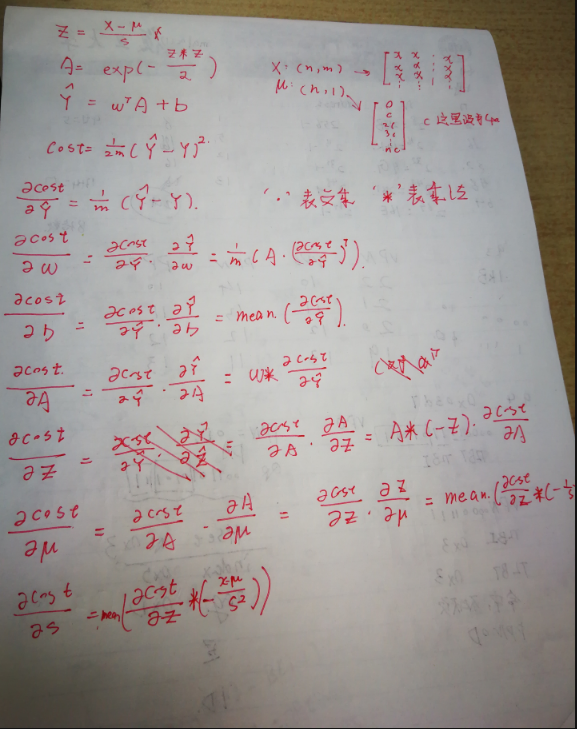 Z = \frac{x-μ}{s}
A = exp(-\frac{Z*Z}{2})
X: (n,m) → [x x ⋮ x x x ⋮ x x x ⋮ x]
μ: (n,1)
[0 c 2c 3c ⋮ nc]
\hat{Y} = w^T A + b
c 这里
cost = \frac{1}{2m}(\hat{Y} - Y)^2
\frac{∂cost}{∂\hat{Y}} = \frac{1}{m}(\hat{Y} - Y).
'·' 表 '*' 表乘法
\frac{∂cost}{∂w} = \frac{∂cost}{∂\hat{Y}} · \frac{∂\hat{Y}}{∂w} = \frac{1}{m}(A · (\frac{∂cost}{∂\hat{Y}})^T).
\frac{∂cost}{∂b} = \frac{∂cost}{∂\hat{Y}} · \frac{∂\hat{Y}}{∂b} = mean.(\frac{∂cost}{∂\hat{Y}}).
\frac{∂cost}{∂A} = \frac{∂cost}{∂\hat{Y}} · \frac{∂\hat{Y}}{∂A} = w* \frac{∂cost}{∂\hat{Y}}
\frac{∂cost}{∂Z} = \frac{∂cost}{∂\hat{Y}} · \frac{∂\hat{Y}}{∂Z} = \frac{∂cost}{∂A} · \frac{∂A}{∂Z} = A*(-Z) · \frac{∂cost}{∂A}
\frac{∂cost}{∂μ} = \frac{∂cost}{∂A} · \frac{∂A}{∂μ} = \frac{∂cost}{∂Z} · \frac{∂Z}{∂μ} = mean.(\frac{∂cost}{∂Z} *(-\frac{1}{s}
\frac{∂cost}{∂s} = mean(\frac{∂cost}{∂Z} *(-\frac{x-μ}{s^2}))